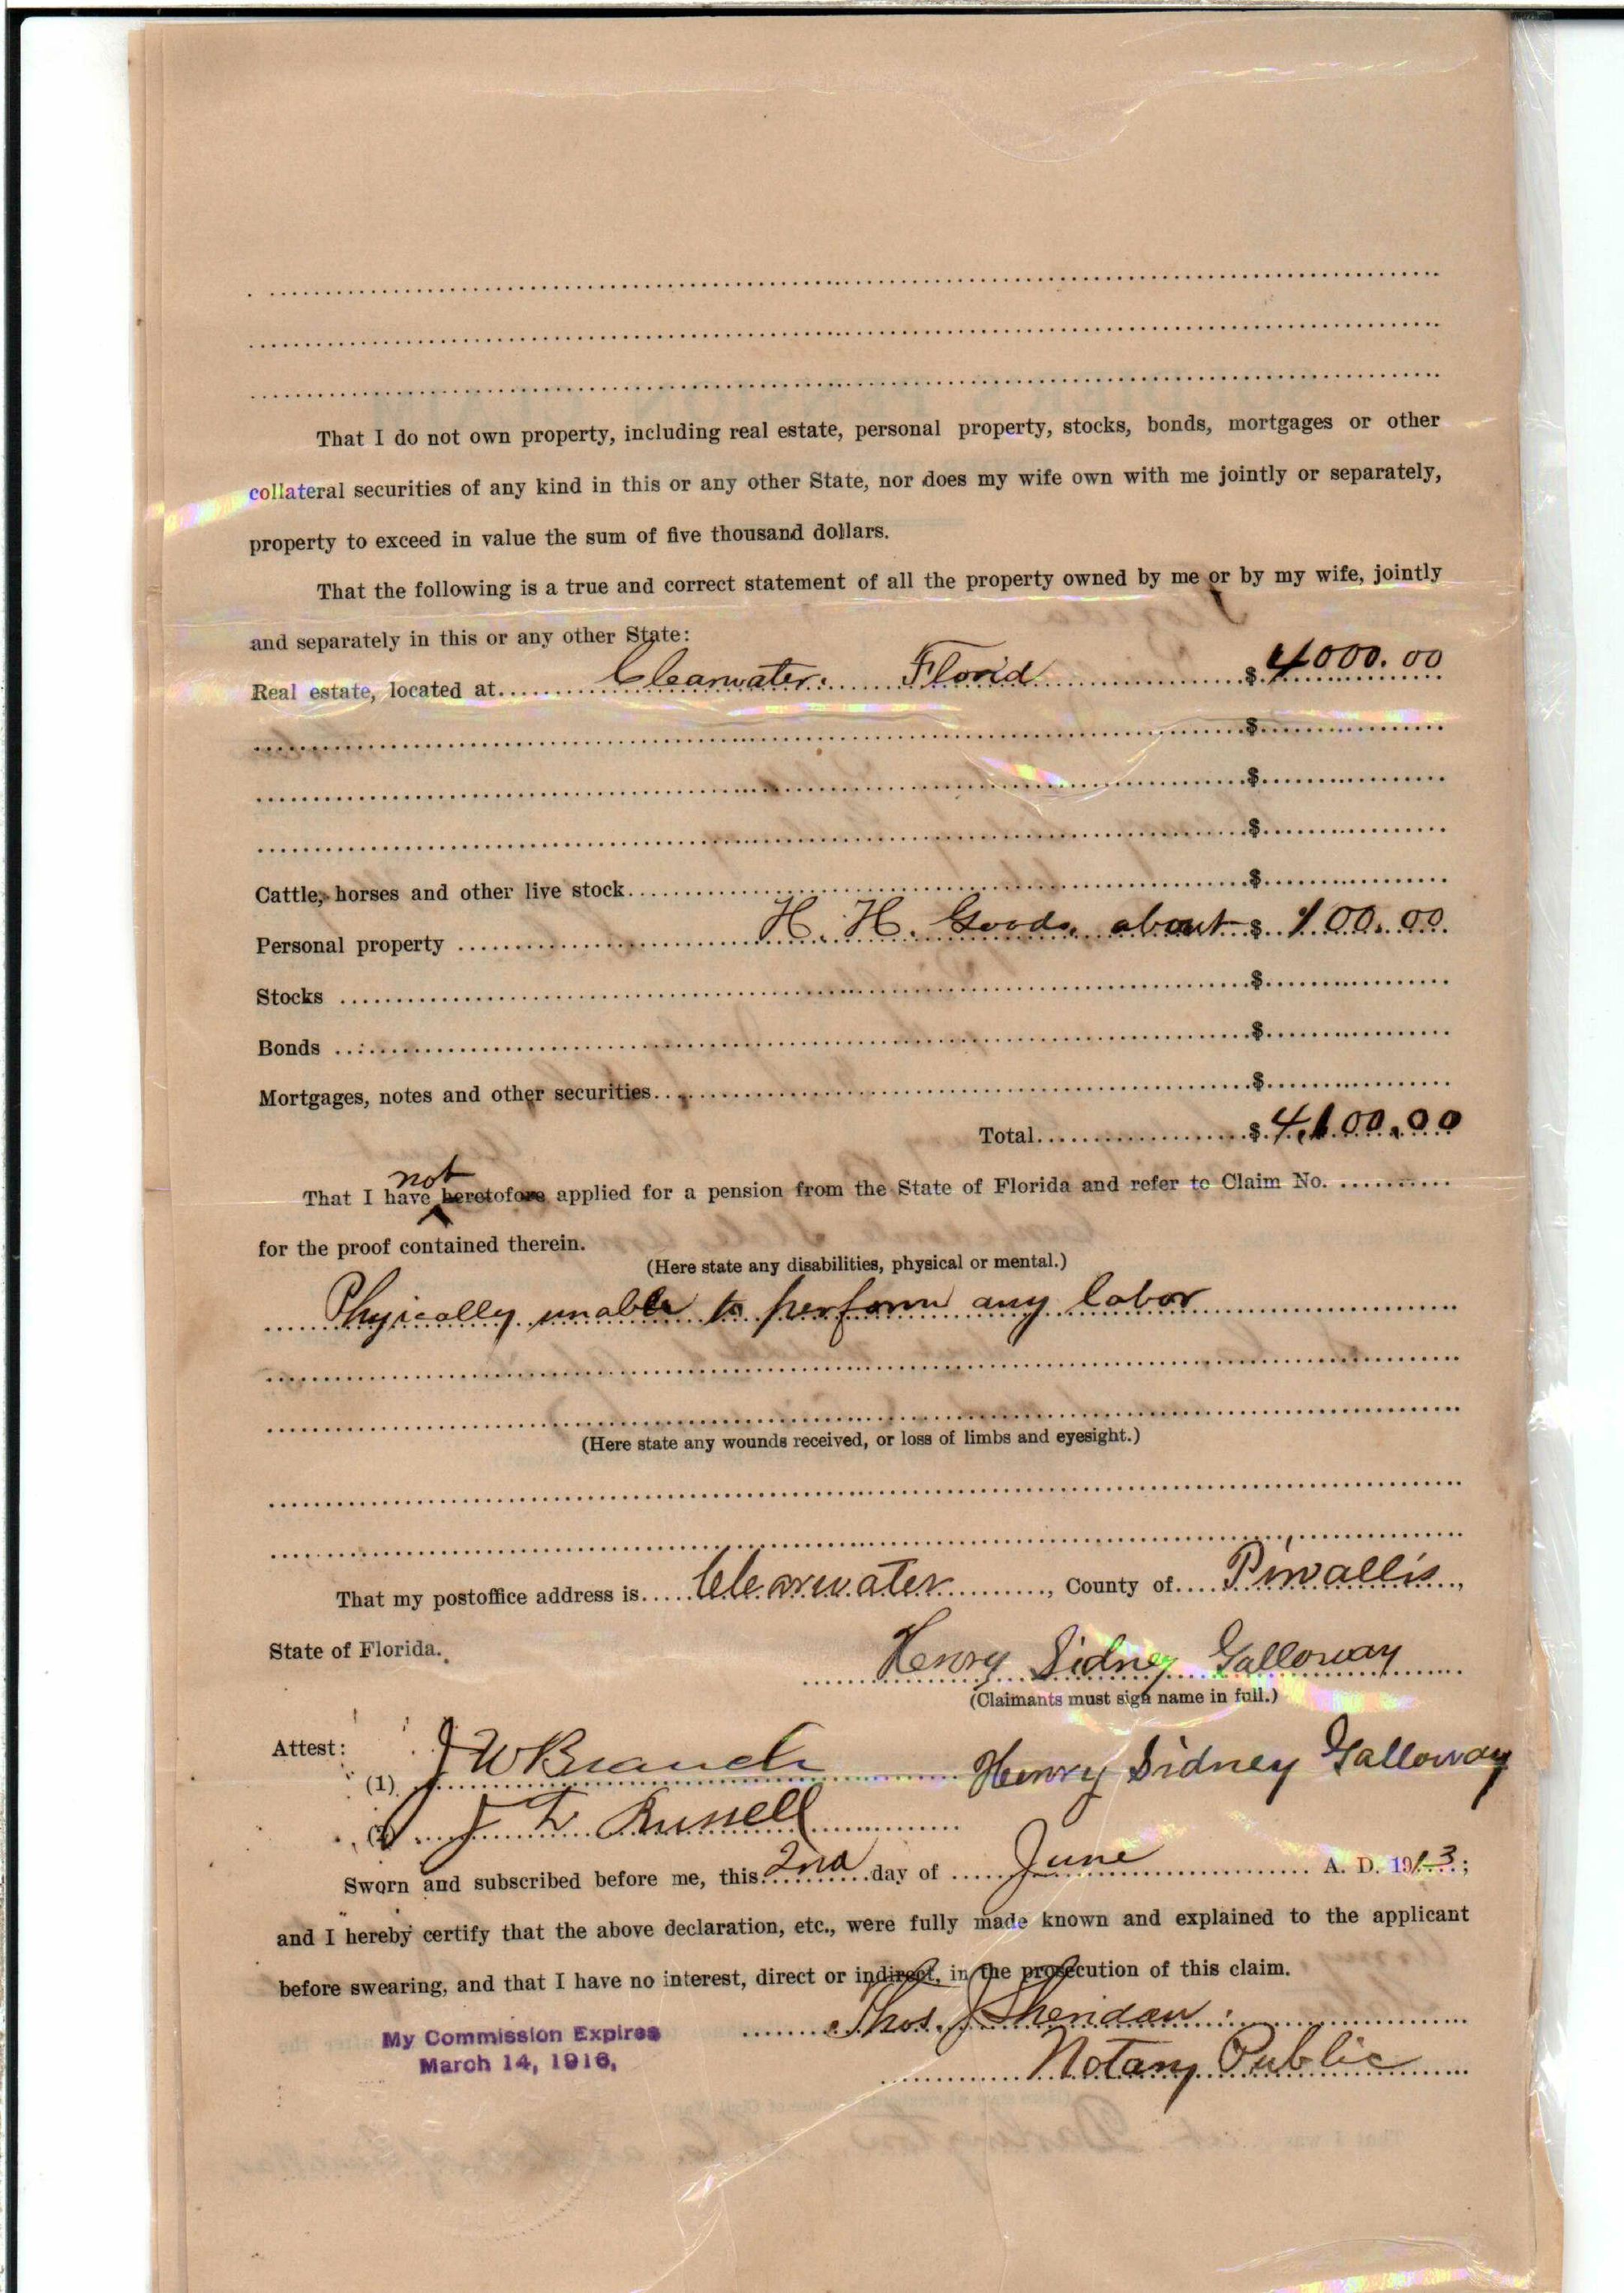 That I do not own property, including real estate, personal property, stocks, bonds, mortgages or other
collateral securities of any kind in this or any other State, nor does my wife own with me jointly or separately,
property to exceed in value the sum of five thousand dollars.
That the following is a true and correct statement of all the property owned by me or by my wife, jointly
and separately in this or any other State:
Real estate, located at Clearwater. Florid $ 4000.00
$
$
$
Cattle, horses and other live stock $
Personal property H. H. Goods, about $ 100.00
Stocks $
Bonds $
Mortgages, notes and other securities $
Total $ 4,100.00
not
That I have heretofore applied for a pension from the State of Florida and refer to Claim No.
for the proof contained therein.
(Here state any disabilities, physical or mental.)
Phyically unable to perform any labor
(Here state any wounds received, or loss of limbs and eyesight.)
That my postoffice address is Clearwater, County of Pinallis,
State of Florida.
Henry Sidney Galloway
(Claimants must sign name in full.)
Attest:
(1) J W Branch Henry Sidney Galloway
(2) Russell
Sworn and subscribed before me, this 2nd day of June A. D. 1913;
and I hereby certify that the above declaration, etc., were fully made known and explained to the applicant
before swearing, and that I have no interest, direct or indirect, in the prosecution of this claim.
Thos. J Sheridan
My Commission Expires
March 14, 1916,
Notary Public